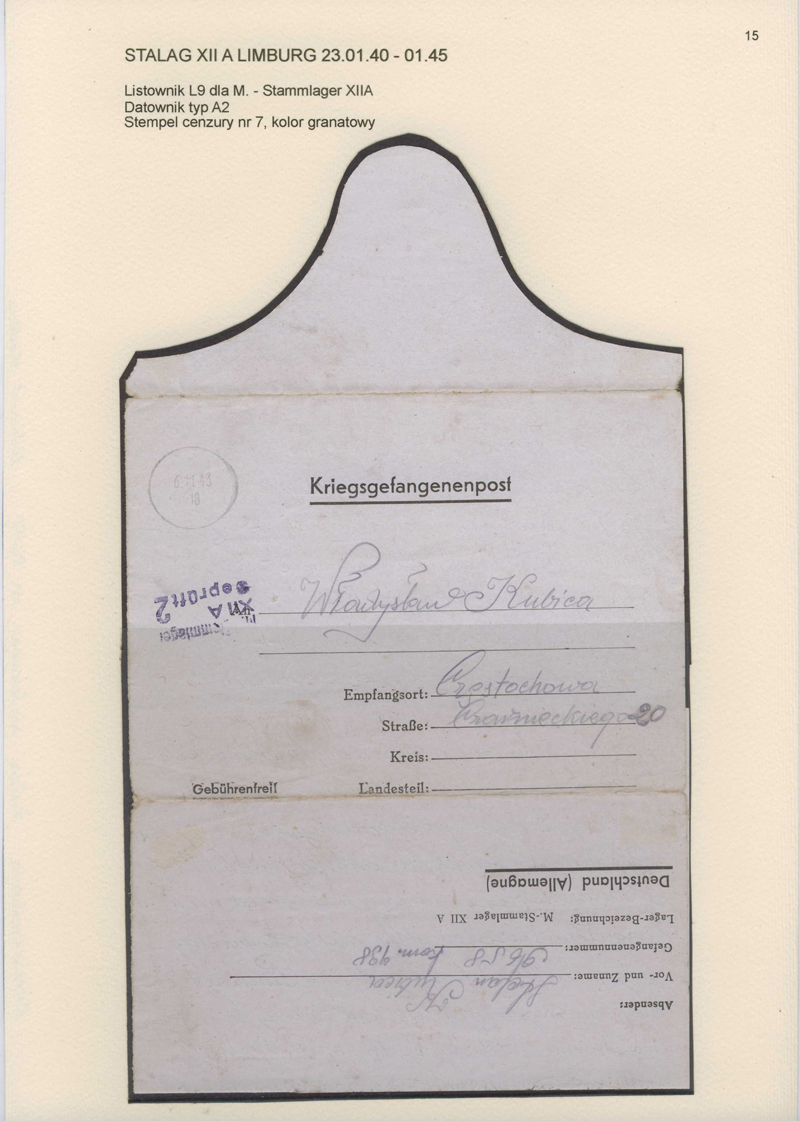 15
STALAG XII A LIMBURG 23.01.40 - 01.45
Listownik L9 dla M. - Stammlager XIIA
Datownik typ A2
Stempel cenzury nr 7, kolor granatowy
6.11.43
18
Kriegsgefangenenpost
Geprüft 2
XII A
Stammlager
An
Władysław Kubica
Empfangsort: Częstochowa
Straße: 20
Kreis:
Gebührenfrei! Landesteil:
Absender:
Vor- und Zuname: Stefan Kubica
Gefangenennummer: 9658 Kom. 938
Lager-Bezeichnung: M.-Stammlager XII A
Deutschland (Allemagne)